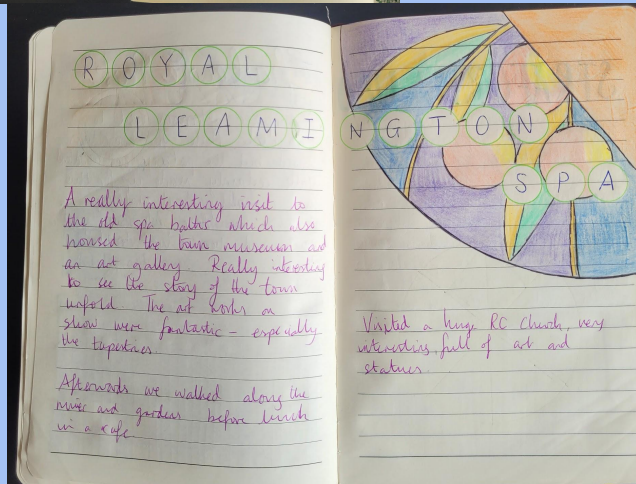 ROYAL
LEAMINGTON
SPA
A really interesting visit to
the old spa baths which also
housed the town museum and
an art gallery. Really interesting
to see the story of the town
unfold. The art works on
show were fantastic - especially
the tapestries.
Afterwards we walked along the
river and gardens before lunch
in a cafe
Visited a huge RC Church, very
interesting, full of art and
statues.